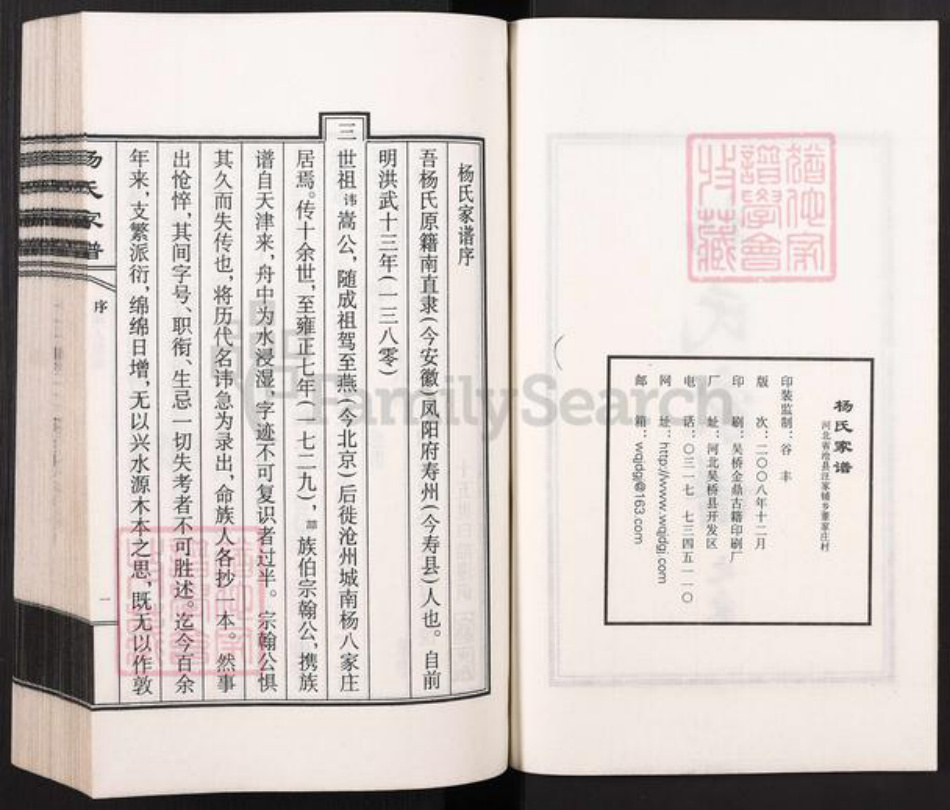 猶他家
譜學會
收藏
杨氏家谱
河北省沧县汪家铺乡董家庄村
印装监制：谷 丰
版 次：二〇〇八年十二月
印 刷：吴桥金鼎古籍印刷厂
厂 址：河北吴桥县开发区
电 话：〇三一七 七三四五一一〇
网 址：http://www.wqjdgj.com
邮 箱：wqjdgj@163.com
杨氏家谱序
吾杨氏原籍南直隶（今安徽）凤阳府寿州（今寿县）人也。自前
明洪武十三年（一三八零）
三
世祖讳嵩公，随成祖驾至燕（今北京）后徙沧州城南杨八家庄
居焉。传十余世，至雍正七年（一七二九），族伯宗翰公，携族
谱自天津来，舟中为水浸湿，字迹不可复识者过半。宗翰公惧
其久而失传也，将历代名讳急为录出，命族人各抄一本。然事
出怆悴，其间字号、职衔、生忌一切失考者不可胜述。迄今百余
年来，支繁派衍，绵绵日增，无以兴水源木本之思，既无以作敦
杨氏家谱
序
一
FamilySearch